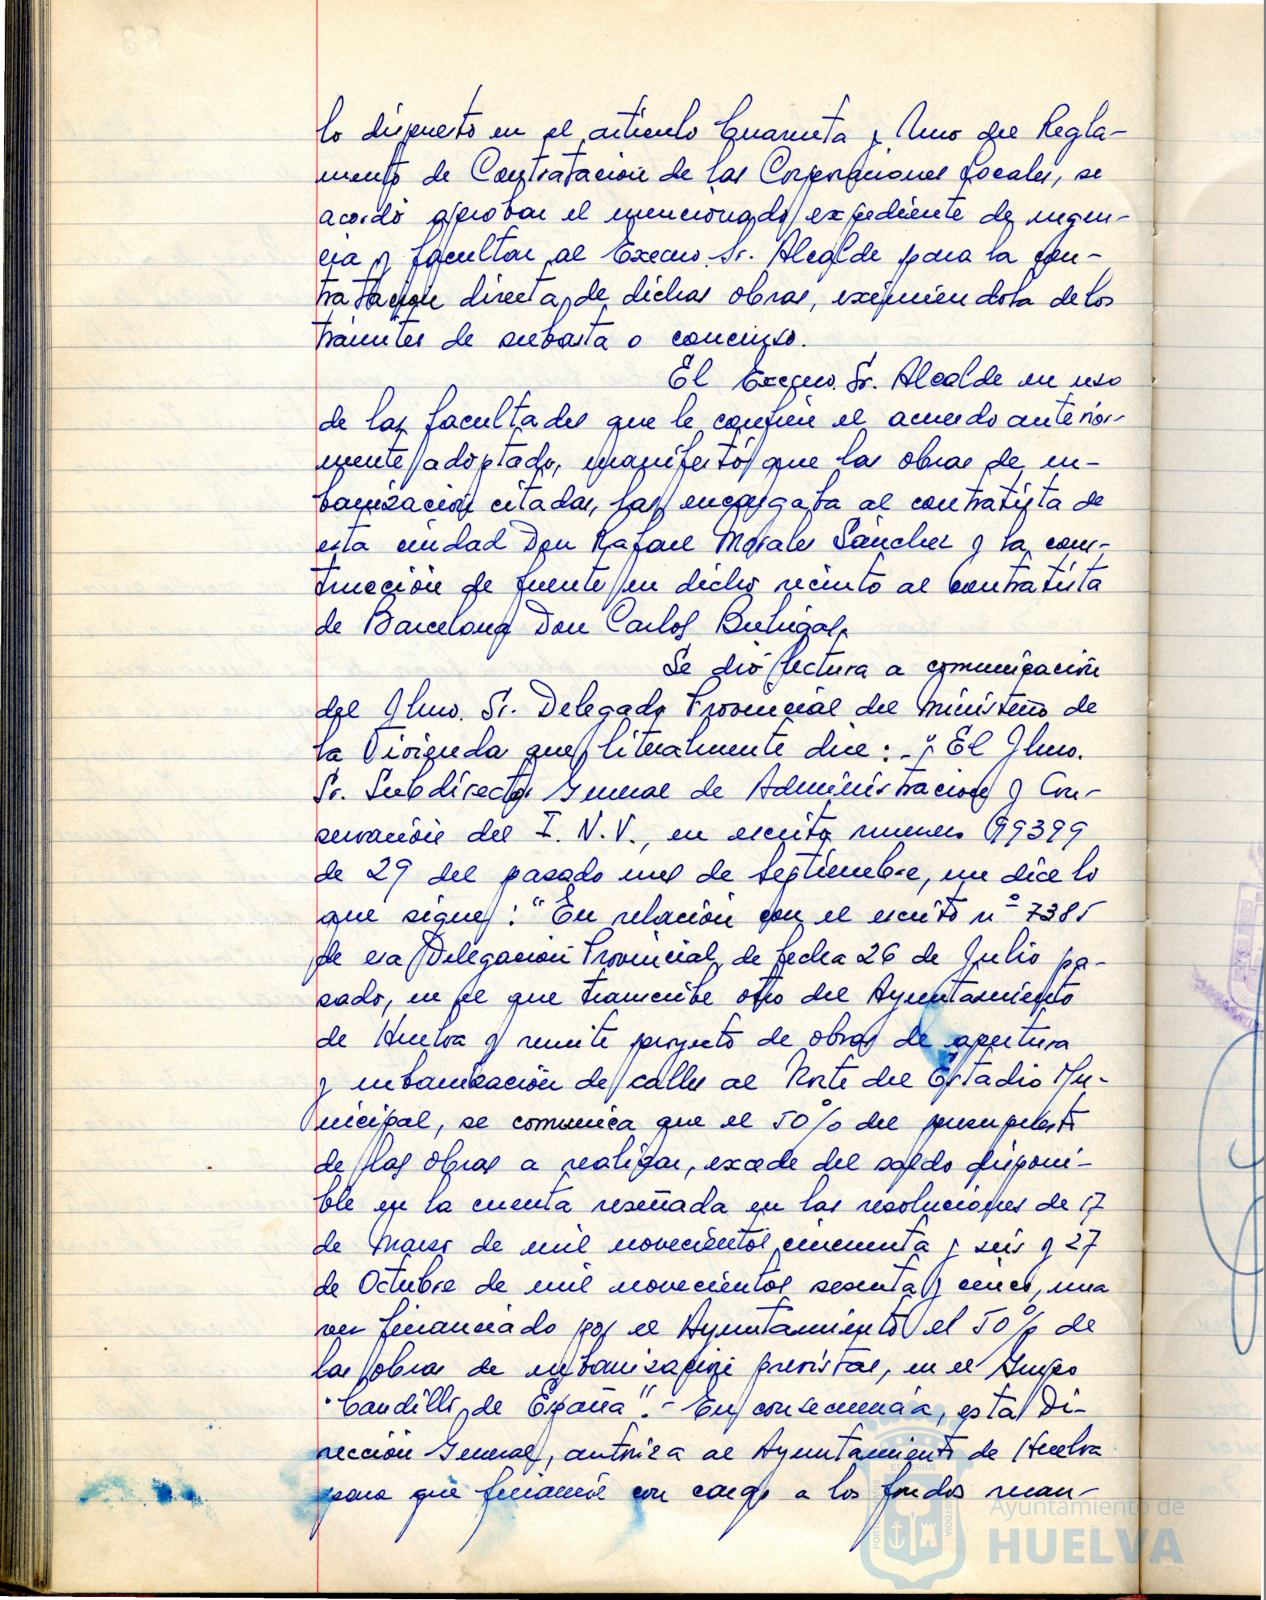 lo dispuesto en el artículo Cuarenta y Uno del Regla-
mento de Contratación de las Corporaciones Locales, se
acordó aprobar el mencionado expediente de urgen-
cia y facultar al Excmo. Sr. Alcalde para la con-
tratación directa de dichas obras, eximiéndola de los
trámites de subasta o concurso.
El Excmo. Sr. Alcalde en uso
de las facultades que le confiere el acuerdo anterior-
mente adoptado, manifestó que las obras de ur-
banización citadas, las encargaba al contratista de
esta ciudad Don Rafael Morales Sánchez y la cons-
trucción de fuente en dicho recinto al contratista
de Barcelona Don Carlos Buhigas.
Se dió lectura a comunicación
del Ilmo. Sr. Delegado Provincial del Ministerio de
la Vivienda que literalmente dice: - "El Ilmo.
Sr. Subdirector General de Administración y Con-
servación del I. N. V., en escrito numero 99399
de 29 del pasado mes de Septiembre, me dice lo
que sigue: "En relación con el escrito nº 7385
de esa Delegación Provincial de fecha 26 de Julio pa-
sado, en el que transcribe otro del Ayuntamiento
de Huelva y remite proyecto de obras de apertura
y urbanización de calles al Norte del Estadio Mu-
nicipal, se comunica que el 50% del presupuesto
de las obras a realizar, excede del saldo disponi-
ble en la cuenta reseñada en las resoluciones de 17
de Marzo de mil novecientos cincuenta y seis y 27
de Octubre de mil novecientos sesenta y cinco, una
vez financiado por el Ayuntamiento el 50% de
las obras de urbanización previstas, en el Grupo
"Caudillo de España". - En consecuencia, esta Di-
rección General, autoriza al Ayuntamiento de Huelva
para que financie con cargo a los fondos rema-
Ayuntamiento de
HUELVA